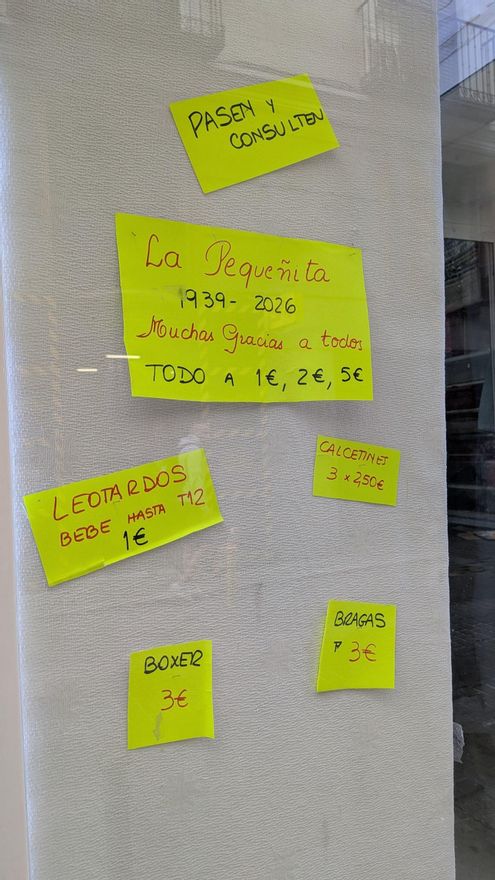 PASEN Y
CONSULTEN
La Pequeñita
1939- 2026
Muchas Gracias a todos
TODO A 1€, 2€, 5€
CALCETINES
3 x 2,50€
LEOTARDOS
BEBE HASTA T12
1€
BRAGAS
3€
BOXER
3€